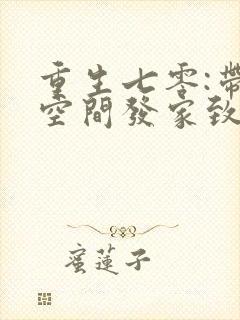 重生七零:帶
空間發家致
蜜蓮子